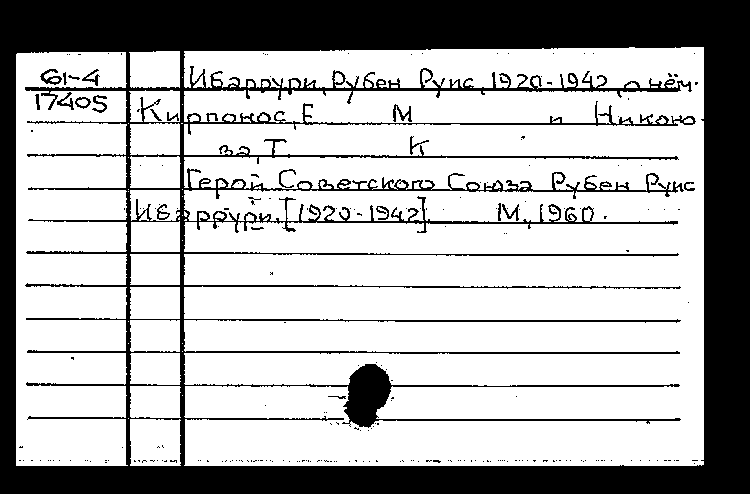 61-4 Ибаррури, Рубен Руис, 1920-1942, о нём.
17405 Кирпонос, Е М и Никоно-
за, Т. К
Герой Советского Союза Рубен Руис
Ибаррури. [1920-1942]. М., 1960.